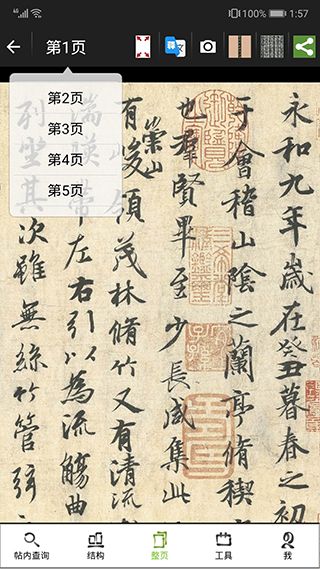 1:57
第1页
第2页
第3页
第4页
第5页
永和九年歲在癸丑暮春之初
于會稽山陰之蘭亭脩禊
也羣賢畢至少長咸集此
有崇山峻領茂林脩竹又有清流
湍暎帶左右引以為流觴曲
列坐其次雖無絲竹管弦
帖内查询
结构
整页
工具
我